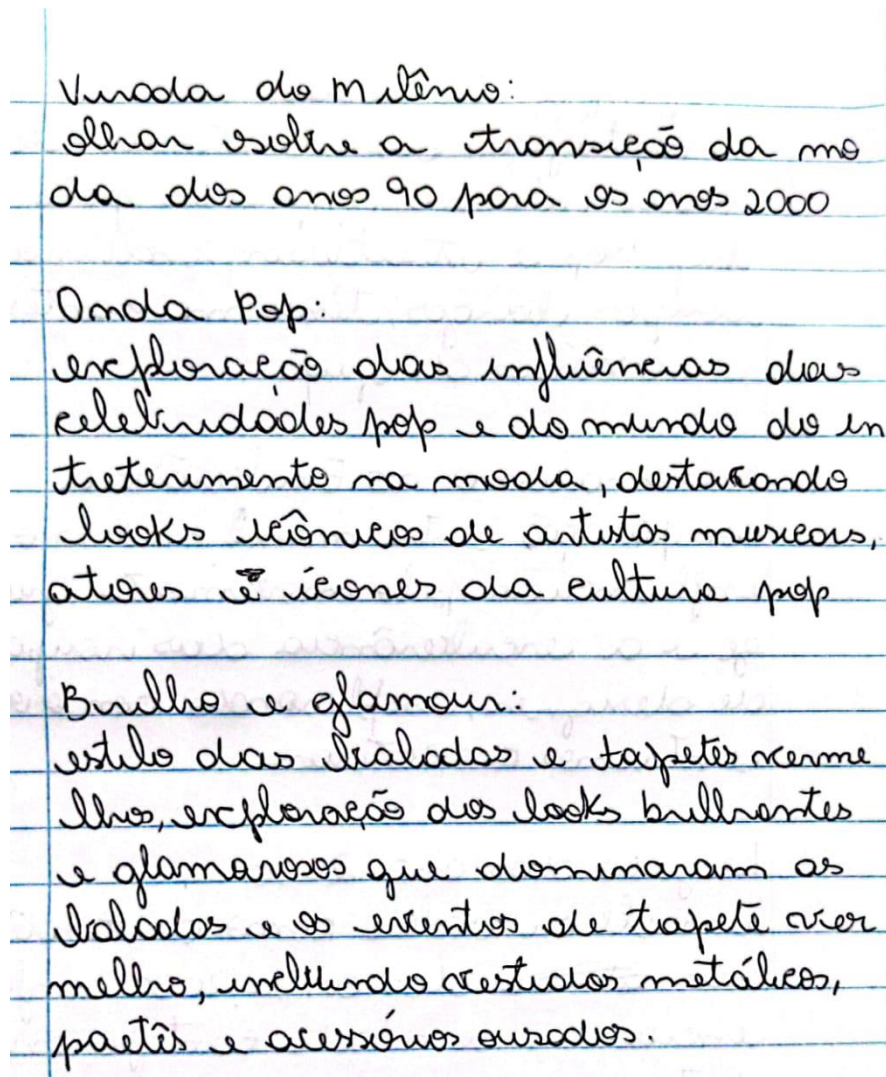 Virada do Milênio:
olhar sobre a transição da mo
da dos anos 90 para os anos 2000
Onda Pop:
exploração das influências das
celebridades pop e do mundo do in
treterimento na moda, destacando
looks icônicos de artistas musicais,
atores e ícones da cultura pop
Brilho e glamour:
estilo das baladas e tapetes verme
lhos, exploração dos looks brilhantes
e glamarosos que dominaram as
baladas e os eventos de tapete ver
melho, incluindo vestidos metálicos,
paetês e acessórios ousados.